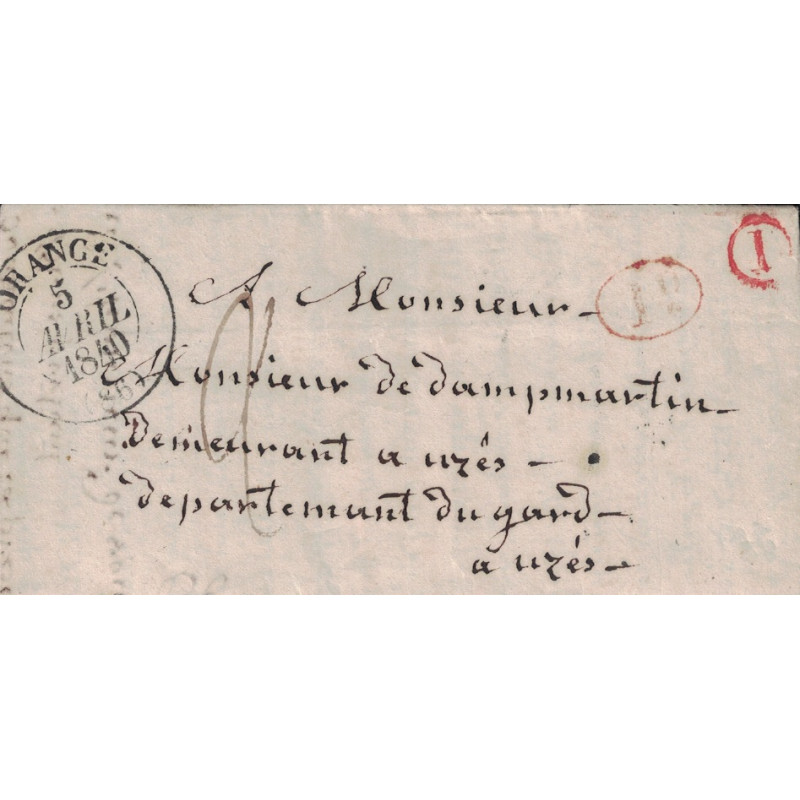 ORANGE
5
AVRIL
1840
(86)
1
A Monsieur
Monsieur de dampmartin
demeurant a uzés
departemant du gard
a uzés